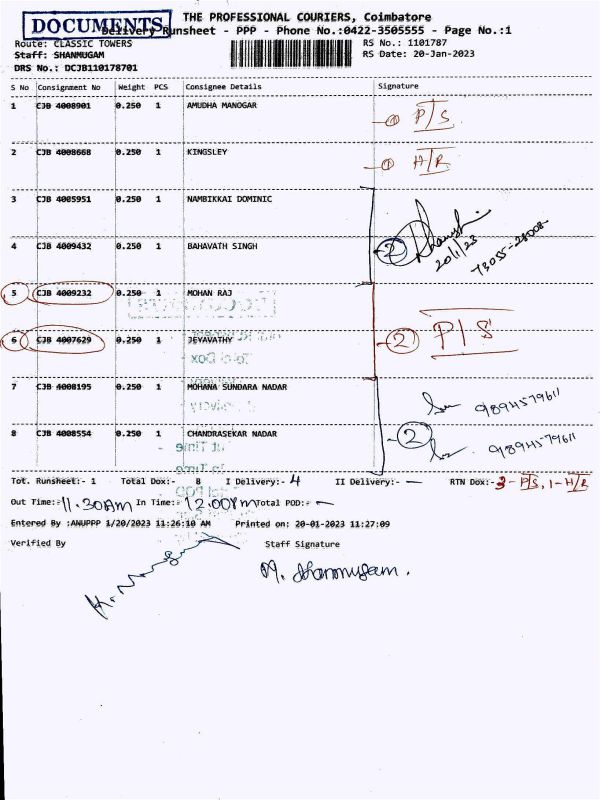 DOCUMENTS
THE PROFESSIONAL COURIERS, Coimbatore
Delivery Runsheet - PPP - Phone No.:0422-3505555 - Page No.:1
Route: CLASSIC TOWERS RS No.: 1101787
Staff: SHANMUGAM RS Date: 20-Jan-2023
DRS No.: DCJB110178701
S No Consignment No Weight PCS Consignee Details Signature
1 CJB 4008901 0.250 1 AMUDHA MANOGAR 1 P/S
2 CJB 4008668 0.250 1 KINGSLEY 1 H/R
3 CJB 4005951 0.250 1 NAMBIKKAI DOMINIC
4 CJB 4009432 0.250 1 BAHAVATH SINGH 2 20/1/23
5 CJB 4009232 0.250 1 MOHAN RAJ
6 CJB 4007629 0.250 1 JEYAVATHY 2 P/S
7 CJB 4008195 0.250 1 MOHANA SUNDARA NADAR 9894579611
8 CJB 4008554 0.250 1 CHANDRASEKAR NADAR 2 9894579611
Tot. Runsheet:- 1 Total Dox:- 8 I Delivery:- 4 II Delivery:- — RTN Dox:- 3 - P/S, 1 - H/R
Out Time:- 11.30am In Time:- 12.00pm Total POD:- —
Entered By :ANUPPP 1/20/2023 11:26:10 AM Printed on: 20-01-2023 11:27:09
Verified By Staff Signature
M. Shanmugam.